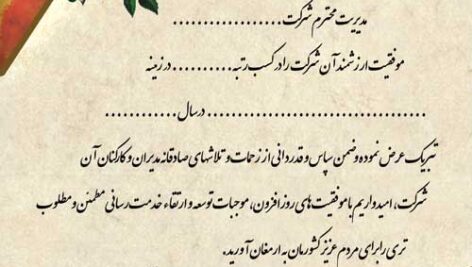 مدیریت محترم شرکت..................
موفقیت ارزشمند آن شرکت را در کسب رتبه.......... در زمینه
.................................... در سال ............
تبریک عرض نموده و ضمن سپاس و قدردانی از زحمات و تلاشهای صادقانه مدیران و کارکنان آن
شرکت، امیدواریم با موفقیت های روز افزون، موجبات توسعه و ارتقاء خدمت رسانی مطمئن و مطلوب
تری را برای مردم عزیز کشورمان به ارمغان آورید.